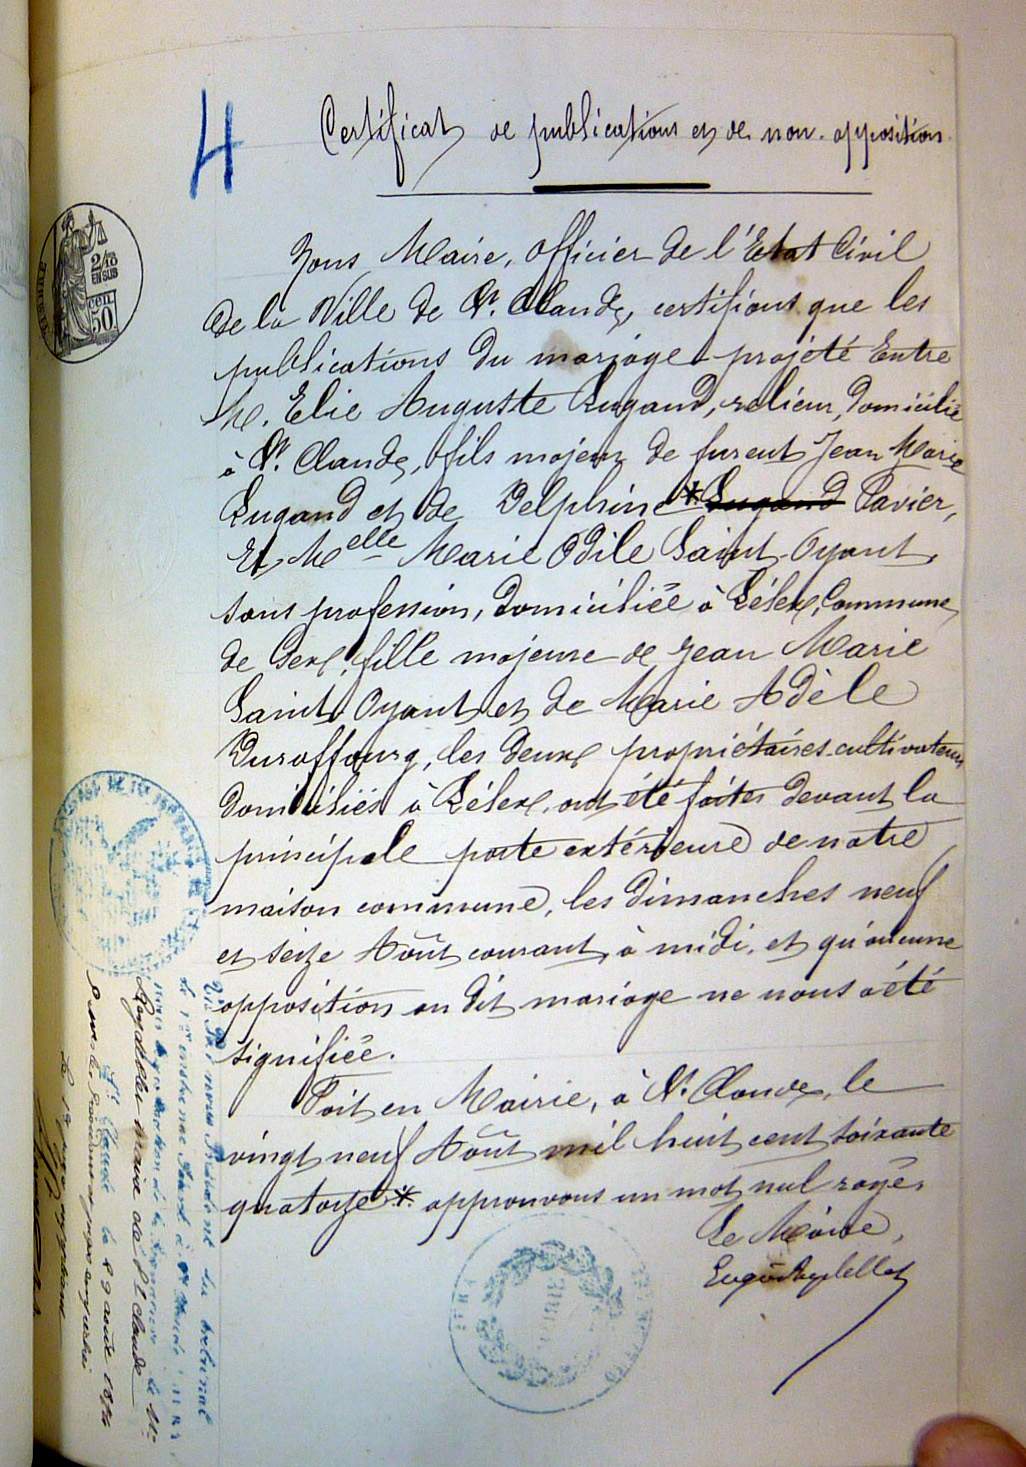 4
Certificat de publications et de non-opposition
Nous Maire, officier de l'Etat Civil
de la Ville de St. Claude, certifions que les
publications du mariage projeté Entre
M. Elie Auguste Lugand, relieur, domicilié
à St. Claude, fils majeur de furent Jean Marie
Lugand et de Delphine * Lugand Pavier,
Et Melle Marie Odile Saint-Oyant
sans profession, domiciliée à Lélex, Commune
de Gex, fille majeure de Jean Marie
Saint Oyant et de Marie Adèle
Duraffourg, les deux propriétaires-cultivateurs
domiciliés à Lélex, ont été faites devant la
principale porte extérieure de notre
maison commune, les dimanches neuf
et seize Août courant, à midi, et qu'aucune
opposition au dit mariage ne nous a été
signifiée.
Fait en Mairie, à St. Claude, le
vingt neuf Août mil huit cent soixante
quatorze *. approuvons un mot nul rayé.
Le Maire,
2/10
EN SUS
50
Vu par nous Président du tribunal
de 1re instance séant à St Claude
maire de St Claude
St Claude le 29 août 1874